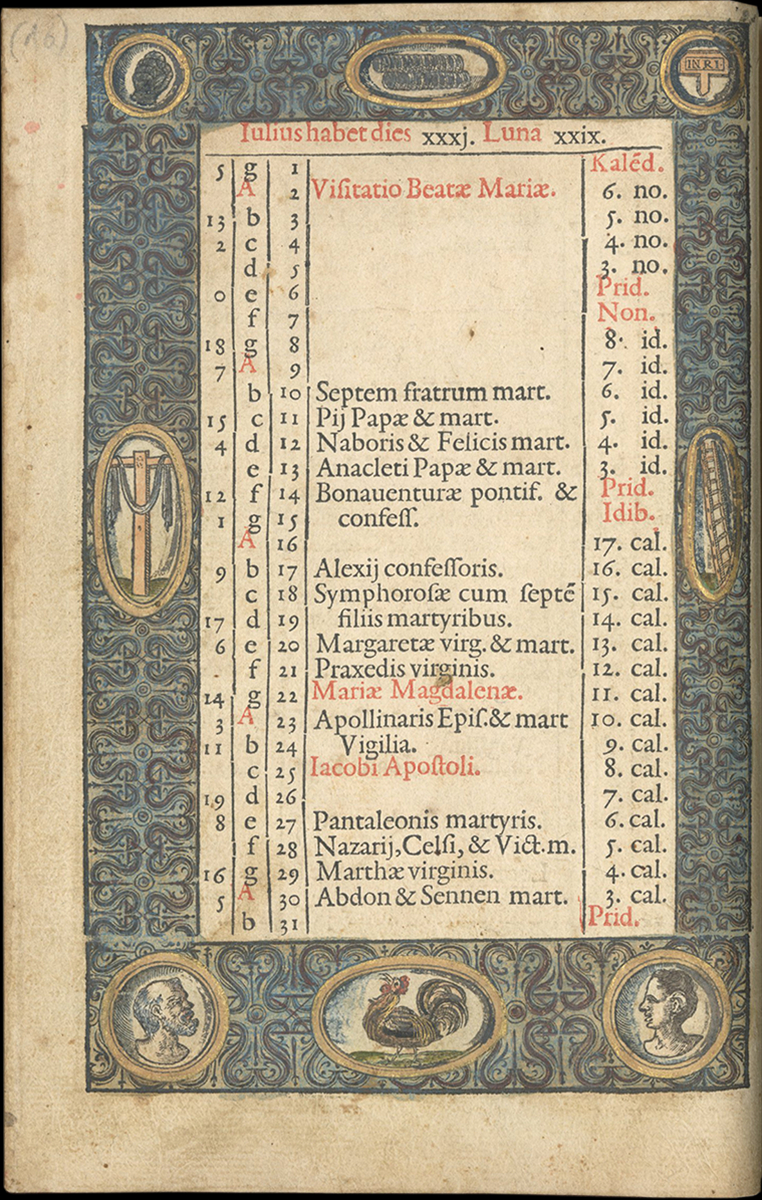 (26)
INRI
Iulius habet dies xxxj. Luna xxix.
5 g 1 Kalēd.
A 2 Visitatio Beatæ Mariæ. 6. no.
13 b 3 5. no.
2 c 4 4. no.
d 5 3. no.
0 e 6 Prid.
f 7 Non.
18 g 8 8. id.
7 A 9 7. id.
b 10 Septem fratrum mart. 6. id.
15 c 11 Pij Papæ & mart. 5. id.
4 d 12 Naboris & Felicis mart. 4. id.
e 13 Anacleti Papæ & mart. 3. id.
12 f 14 Bonauenturæ pontif. & Prid.
1 g 15 confeſſ. Idib.
A 16 17. cal.
9 b 17 Alexij confeſſoris. 16. cal.
c 18 Symphoroſæ cum ſeptē 15. cal.
17 d 19 filiis martyribus. 14. cal.
6 e 20 Margaretæ virg. & mart. 13. cal.
f 21 Praxedis virginis. 12. cal.
14 g 22 Mariæ Magdalenæ. 11. cal.
3 A 23 Apollinaris Epiſ. & mart 10. cal.
11 b 24 Vigilia. 9. cal.
c 25 Iacobi Apoſtoli. 8. cal.
19 d 26 7. cal.
8 e 27 Pantaleonis martyris. 6. cal.
f 28 Nazarij, Celſi, & Vict. m. 5. cal.
16 g 29 Marthæ virginis. 4. cal.
5 A 30 Abdon & Sennen mart. 3. cal.
b 31 Prid.